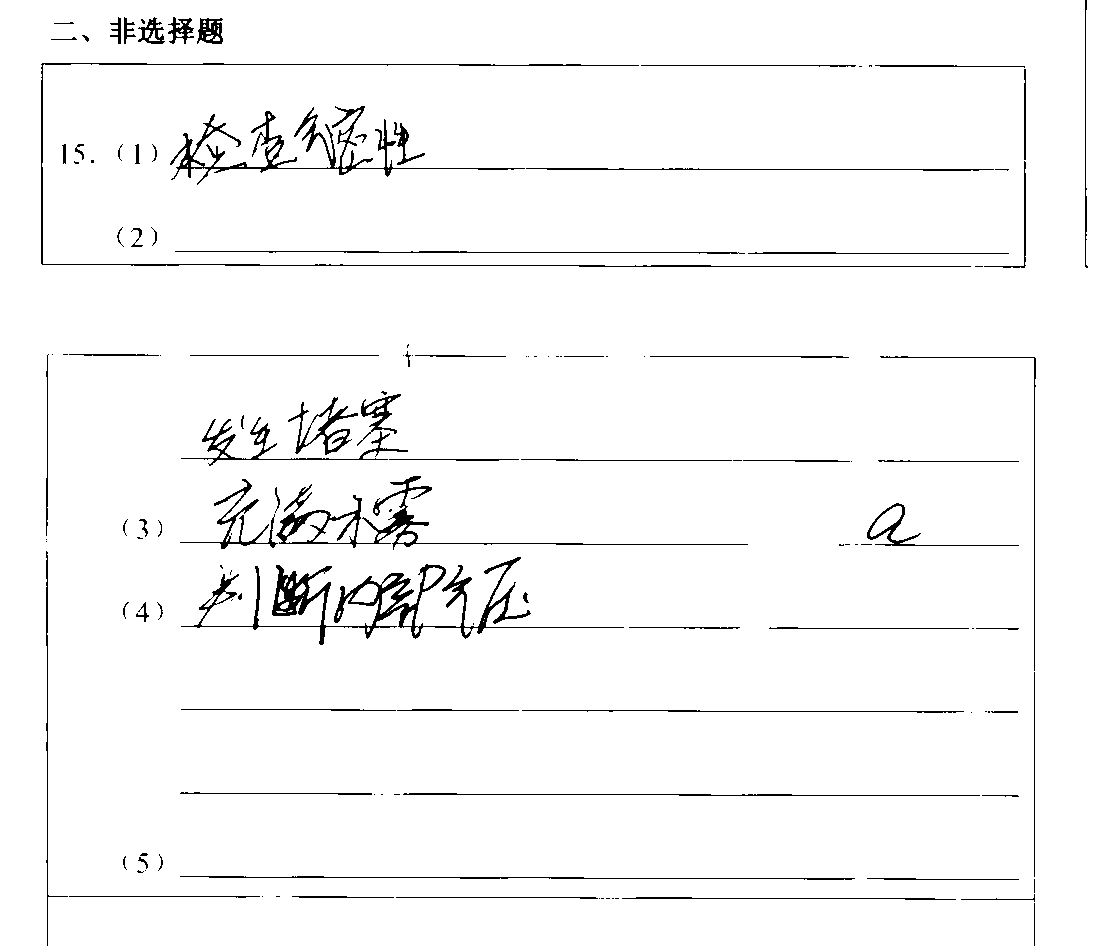 二、非选择题
15.（1）检查气密性
（2）
发生堵塞
（3）充满水雾 a
（4）判断内部气压
（5）